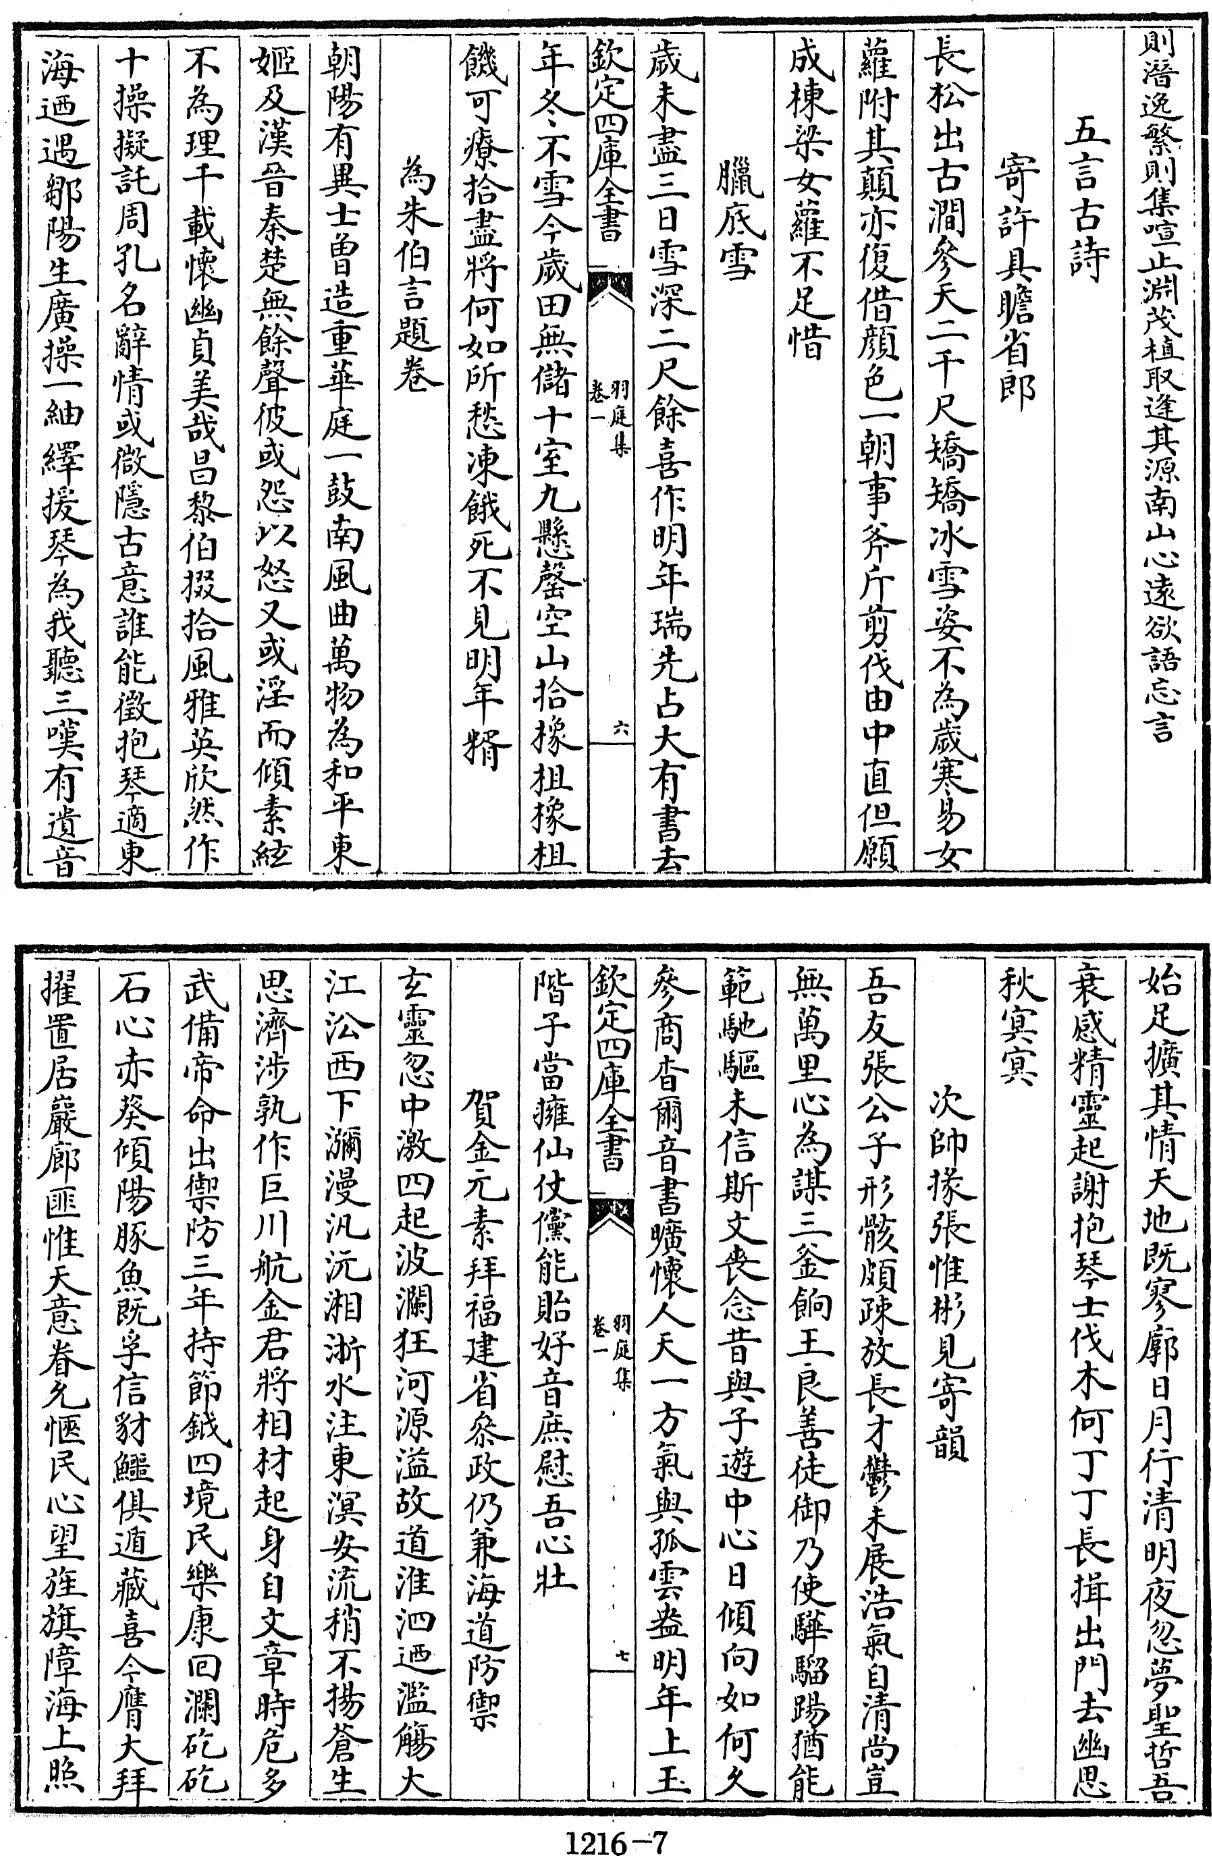 則潛逸繁則集喧止淵茂植取逢其源南山心遠欲語忘言
五言古詩
寄許具瞻省郎
長松出古澗參天二千尺矯矯冰雪姿不為歲寒易女
蘿附其顛亦復借顏色一朝事斧斤剪伐由中直但願
成棟梁女蘿不足惜
臘底雪
歲未盡三日雪深二尺餘喜作明年瑞先占大有書去
欽定四庫全書
羽庭集
卷一
六
年冬不雪今歲田無儲十室九懸罄空山拾橡柤橡柤
饑可療拾盡將何如所愁凍餓死不見明年糈
為朱伯言題卷
朝陽有異士曾造重華庭一鼓南風曲萬物為和平東
姬及漢晉秦楚無餘聲彼或怨以怒又或淫而傾素絃
不為理千載懷幽貞美哉昌黎伯掇拾風雅英欣然作
十操擬託周孔名辭情或微隱古意誰能徵抱琴適東
海迺遇鄒陽生廣操一紬繹援琴為我聽三嘆有遺音
始足擴其情天地既寥廓日月行清明夜忽夢聖哲吾
衰感精靈起謝抱琴士伐木何丁丁長揖出門去幽思
秋冥冥
次帥掾張惟彬見寄韻
吾友張公子形骸頗疎放長才鬱未展浩氣自清尚豈
無萬里心為謀三釜餉王良善徒御乃使驊騮踢猶能
範馳驅未信斯文喪念昔與子遊中心日傾向如何久
參商杳爾音書曠懷人天一方氣與孤雲盎明年上玉
欽定四庫全書
羽庭集
卷一
七
階子當擁仙仗儻能貽好音庶慰吾心壯
賀金元素拜福建省叅政仍兼海道防禦
玄靈忽中激四起波瀾狂河源溢故道淮泗迺濫觴大
江㳂西下瀰漫汎沅湘浙水注東溟安流稍不揚蒼生
思濟涉孰作巨川航金君將相材起身自文章時危多
武備帝命出禦防三年持節鉞四境民樂康回瀾砣砣
石心赤葵傾陽豚魚既孚信豺鱷俱遁藏喜今膺大拜
擢置居巖廊匪惟天意眷允愜民心望旌旗障海上照
1216-7